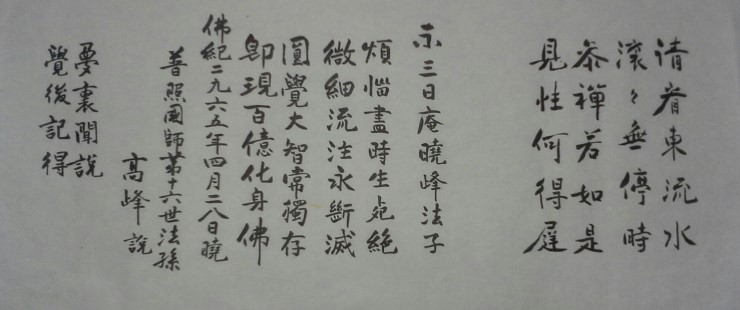 請看東流水
滾々無停時
參禪若如是
見性何得遲
示三日庵曉峰法子
煩惱盡時生死絶
微細流注永斷滅
圓覺大智常獨存
卽現百億化身佛
佛紀二九六五年四月二八日曉
普照國師第十六世法孫
高峰說
夢裏聞說
覺後記得